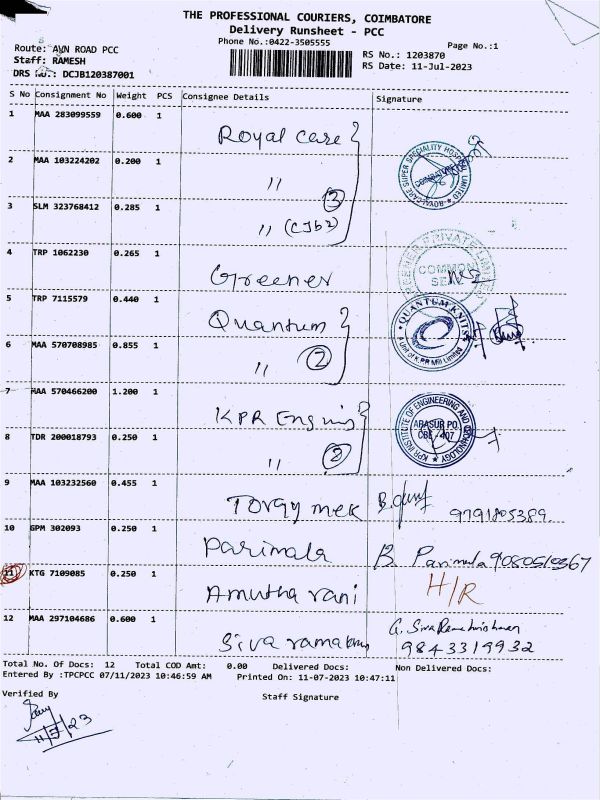 THE PROFESSIONAL COURIERS, COIMBATORE
Delivery Runsheet - PCC
Phone No.:0422-3505555
Page No.:1
Route: AVN ROAD PCC
Staff: RAMESH
DRS No.: DCJB120387001
RS No.: 1203870
RS Date: 11-Jul-2023
S No Consignment No Weight PCS Consignee Details Signature
1 MAA 283099559 0.600 1 Royal Care
2 MAA 103224202 0.200 1 " ③
3 SLM 323768412 0.285 1 " (CJb2)
ROYALCARE SUPER SPECIALITY HOSPITAL LIMITED
COIMBATORE
4 TRP 1062230 0.265 1 Greener
GREENER PRIVATE LIMITED
COMMON
SEAL
5 TRP 7115579 0.440 1 Quantum
6 MAA 570708985 0.855 1 " ②
QUANTUM KNITS
A Unit of K.P.R Mill Limited
7 MAA 570466200 1.200 1 KPR Engine
8 TDR 200018793 0.250 1 " ②
KPR INSTITUTE OF ENGINEERING AND TECHNOLOGY
ARASUR PO.
CBE-407
9 MAA 103232560 0.455 1 Torqy mek 9791805389
10 GPM 302093 0.250 1 Parimala B Parimala 9080510367
11 KTG 7109085 0.250 1 Amutha rani H/R
12 MAA 297104686 0.600 1 Siva ramakris G. Siva Ramakrishnan
9843319932
Total No. Of Docs: 12 Total COD Amt: 0.00 Delivered Docs: Non Delivered Docs:
Entered By :TPCPCC 07/11/2023 10:46:59 AM Printed On: 11-07-2023 10:47:11
Verified By Staff Signature
11/7/23